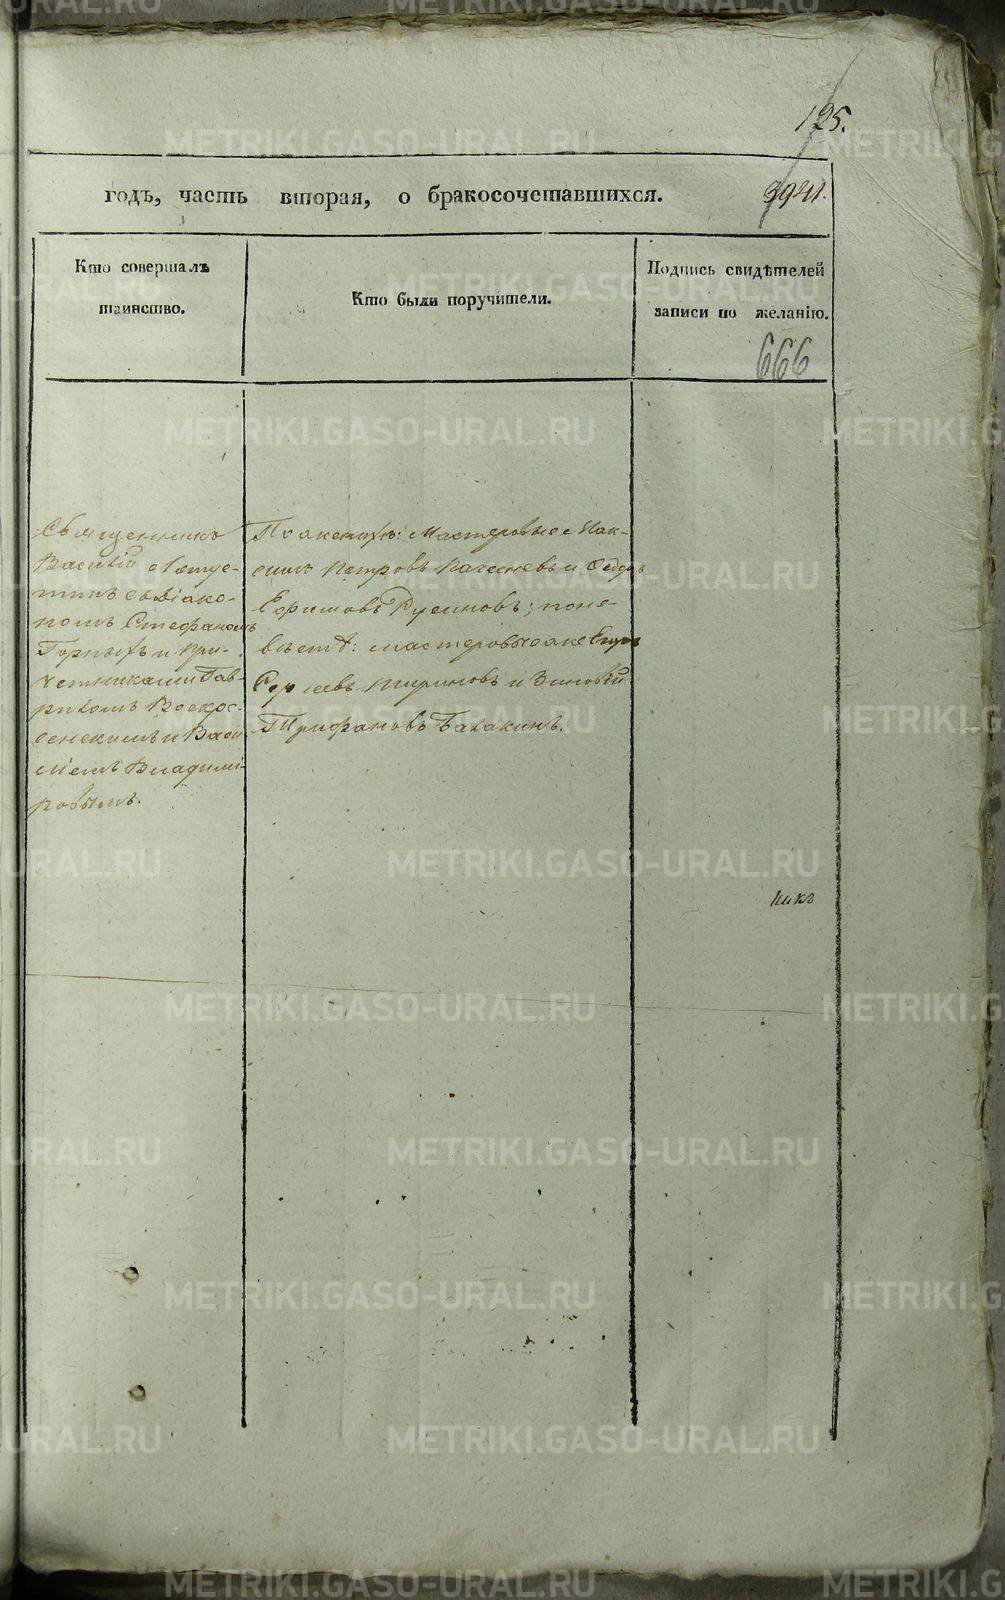 125.
годъ, часть вторая, о бракосочетавшихся.
3941.
Кто совершалъ
таинство.
Кто были поручители.
Подпись свидѣтелей
записи по желанію.
666
Священникъ
Василій
съ Діако-
номъ Стефаномъ
Горныхъ и При-
четниками Гав-
риломъ Воскре-
сенскимъ и Васи
ліемъ Владимі-
ровымъ.
По женихѣ: Мастеровые Мак-
симъ Петровъ и Ѳедоръ
Ефимовъ Русиновъ; по не-
вѣстѣ: мастеровые же
Сергѣевъ Ширинковъ и Зиновій
Трифановъ Балакинъ.
никъ
METRIKI.GASO-URAL.RU